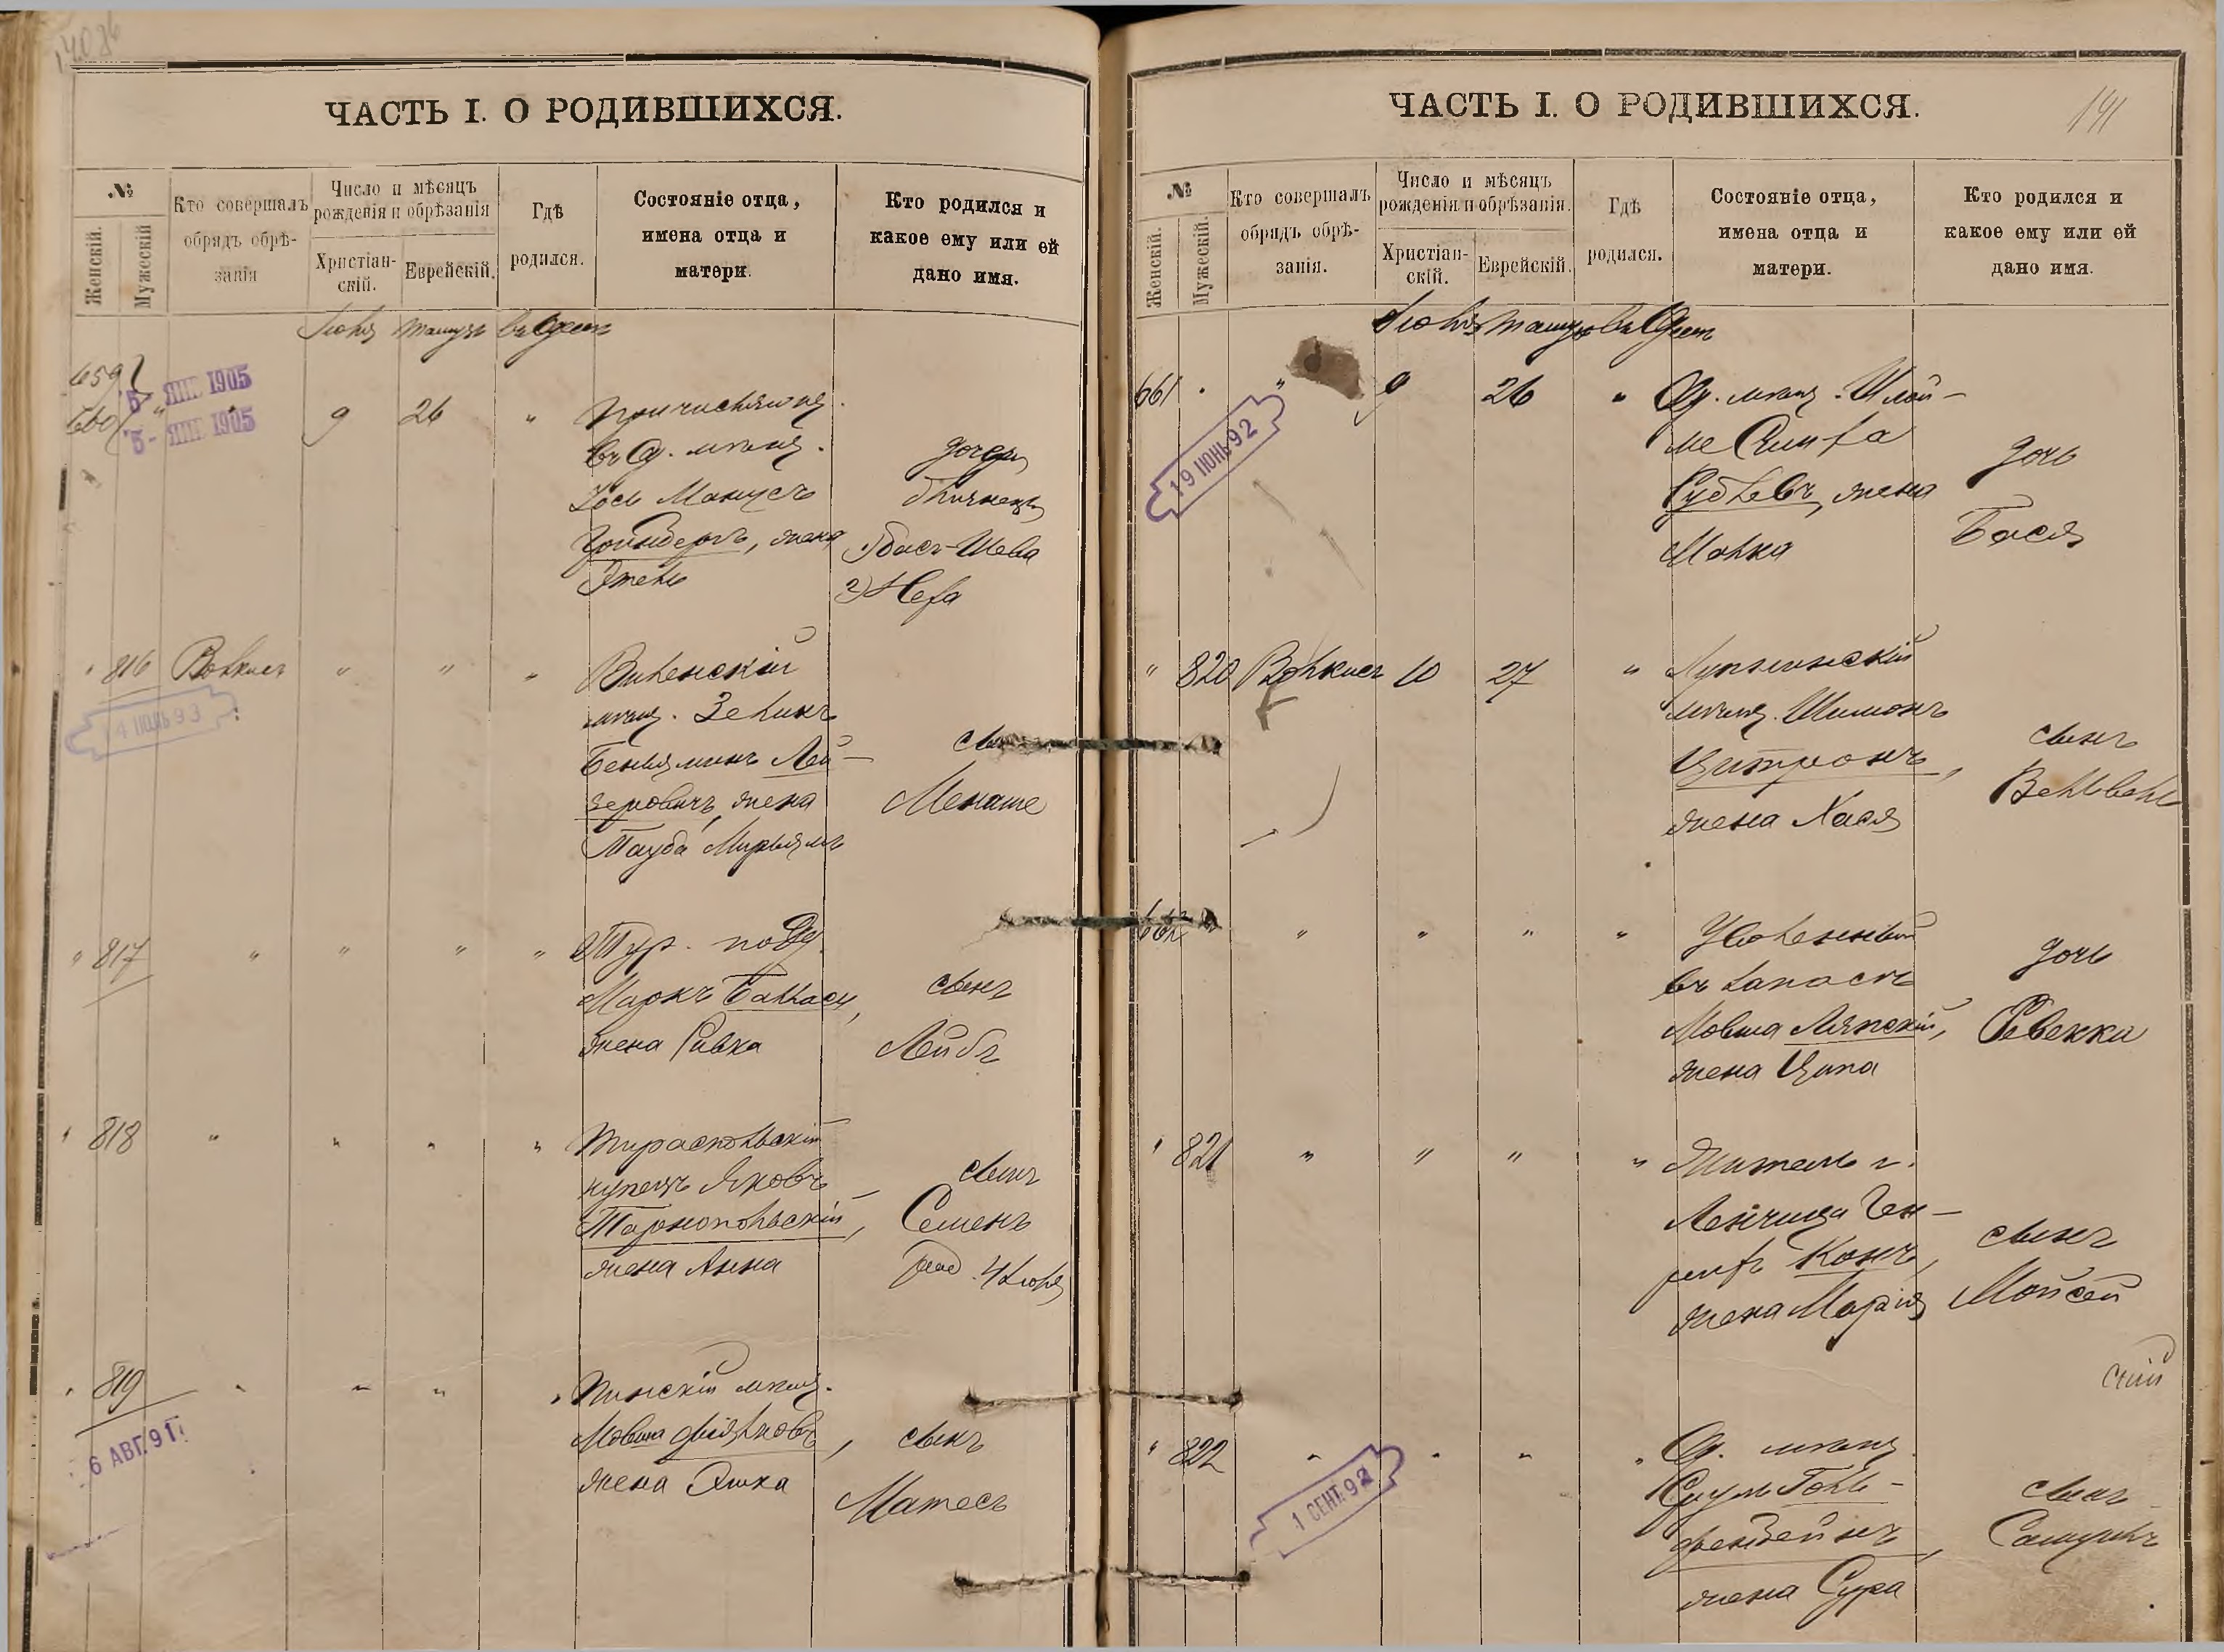 ЧАСТЬ I. О РОДИВШИХСЯ.
№
Женскій.
Мужескій
Кто совершалъ
обрядъ обрѣ-
занія
Число и мѣсяцъ
рожденія и обрѣзанія
Христіан-
скій.
Еврейскій.
Гдѣ
родился.
Состояніе отца,
имена отца и
матери.
Кто родился и
какое ему или ей
дано имя.
Іюля тамузъ въ Одессѣ
659
660 " 9 26 "
5- ЯНВ. 1905
5- ЯНВ. 1905
въ Од. мѣщ.
Іось Манусъ
Гринбергъ, жена
Этель
дочери
близнецы
Бась-Шева
2)
" 816 " " "
14 ІЮЛЬ 93
Виленскій
мѣщ. Зеликъ
Беньяминъ Лей-
зеровичъ, жена
Тауба Мирьямъ
сынъ
Менаше
" 817 " " " "
Тур. подд.
Маркъ
жена Ривка
сынъ
Лейбъ
" 818 " " " "
Тираспольскій
купецъ Яковъ
Тарнопольскій,
жена Анна
сынъ
Семенъ
род. 4 Іюля
" 819 " " " "
6 АВГ. 91
Пинскій мѣщ.
Мовша
жена Эшка
сынъ
Матесъ
ЧАСТЬ I. О РОДИВШИХСЯ.
141
№
Женскій.
Мужескій.
Кто совершалъ
обрядъ обрѣ-
занія.
Число и мѣсяцъ
рожденія и обрѣзанія.
Христіан-
скій.
Еврейскій.
Гдѣ
родился.
Состояніе отца,
имена отца и
матери.
Кто родился и
какое ему или ей
дано имя.
Іюля тамузъ въ Одессѣ
661 " " 9 26 "
19 ІЮНЬ 92
Од. мѣщ. Шлой-
ме Симха
жена
Малка
дочь
Бася
" 820 10 27 "
мѣщ. Шимонъ
Цитронъ,
жена Хася
сынъ
Вельвель
662 " " " " "
Уволенный
въ запасъ
Мовша Ляпскій,
жена Ципа
дочь
Ревекка
" 821 " " " "
Житель г.
Ленчица Ген-
рихъ Конъ,
жена Марія
сынъ
Мойсей
сій
" 822 " " " "
1 СЕНТ. 92
Од. мѣщ.
Сруль Голь-
денбейнъ,
жена Сура
сынъ
Самуилъ